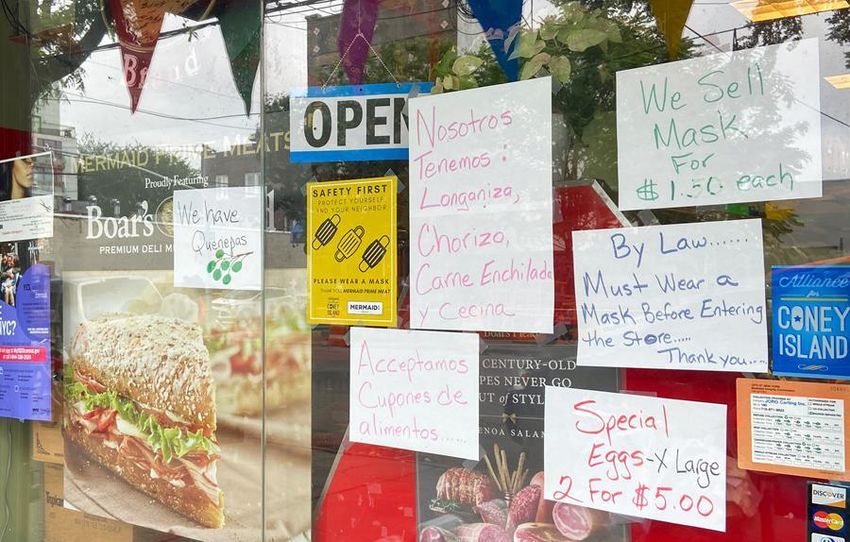 Bread
OPEN
MERMAID PRIME MEATS
Proudly Featuring
Boar's
PREMIUM DELI
We have
Quenepas
SAFETY FIRST
PROTECT YOURSELF
AND YOUR NEIGHBOR
PLEASE WEAR A MASK
THANK YOU MERMAID PRIME MEAT
CONEY ISLAND
MERMAID
Nosotros
Tenemos:
Longaniza,
Chorizo,
Carne Enchilada
y Cecina
We Sell
Mask
For
$1.50 each
By Law.......
Must Wear a
Mask Before Entering
the Store.....
Thank you....
Alliance
for
CONEY
ISLAND
Acceptamos
Cupones de
alimentos......
CENTURY-OLD
PES NEVER GO
UT of STYL
ENOA SALAM
Special
Eggs-X Large
2 For $5.00
NYC?
JORO Carting Inc.
DISCOVER
MasterCard